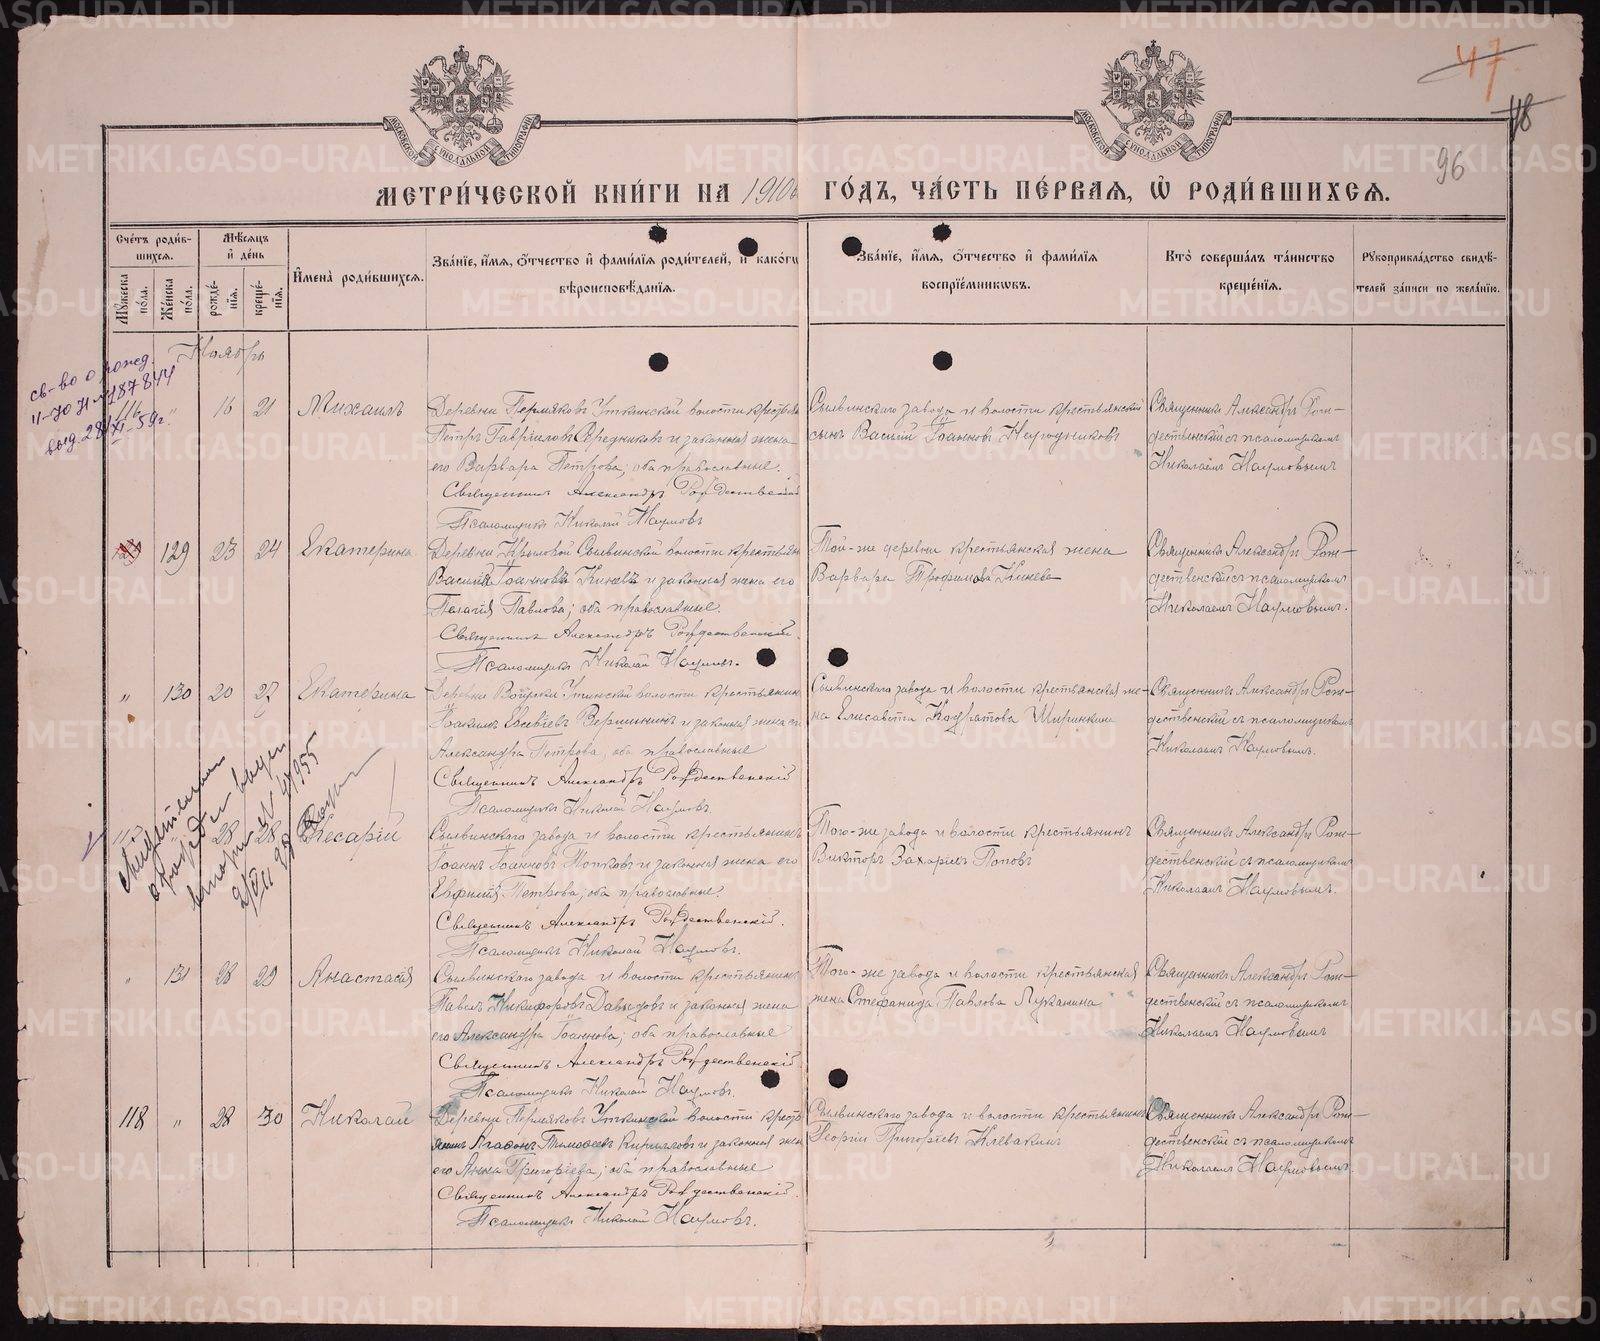 47
48
96
МОСКОВСКОЙ СѴНОДАЛЬНОЙ ТИПОГРАФІИ
МОСКОВСКОЙ СѴНОДАЛЬНОЙ ТИПОГРАФІИ
МЕТРИ́ЧЕСКОЙ КНИ́ГИ НА 1910й ГО́ДЪ, ЧА́СТЬ ПЕ́РВАЯ, Ѡ РОДИ́ВШИХСѦ.
Сче́тъ роди́вшихсѧ.
Мꙋ́жеска по́ла.
Же́нска по́ла.
Мѣ́сѧцъ и҆ де́нь
рожде́нїѧ.
креще́нїѧ.
И҆мена̀ роди́вшихсѧ.
Зва́нїе, и҆́мѧ, ѻ҆́тчество и҆ фами́лїѧ роди́телей, и҆ како́гѡ вѣроисповѣ́данїѧ.
Зва́нїе, и҆́мѧ, ѻ҆́тчество и҆ фами́лїѧ воспрїе́мникѡвъ.
Кто̀ соверша́лъ та́инство креще́нїѧ.
Рꙋкоприкла́дство свидѣ́телей за́писи по жела́нїю.
Ноябрь
св-во о рожд.
II-ЮЯ №187844
выд. 28/XI-59г.
116 " 16 21 Михаилъ
Деревни Пермяковъ Уткинской волости крестьян
Петръ Гавриловъ Средниковъ и законная жена
его Варвара Петрова; оба православные.
Священникъ Александръ Рождественскій
Псаломщикъ Николай Наумовъ
Сылвинскаго завода и волости крестьянскій
сынъ Василій Іоанновъ
Священникъ Александръ Рож-
дественскій съ псаломщикомъ
Николаемъ Наумовымъ
129 23 24 Екатерина
Деревни Крыловой Сылвинской волости крестьян
Василій Іоанновъ Киневъ и законная жена его
Пелагія Павлова; оба православные.
Священникъ Александръ Рождественскій.
Псаломщикъ Николай Наумовъ.
Той-же деревни крестьянская жена
Варвара Трофимова Кинева
Священникъ Александръ Рож-
дественскій съ псаломщикомъ
Николаемъ Наумовымъ.
" 130 20 27 Екатерина
Деревни Волости крестьянинъ
Іоакимъ Евсевіевъ Вершининъ и законная жена его
Александра Петрова, оба православные
Священникъ Александръ Рождественскій
Псаломщикъ Николай Наумовъ.
Сылвинскаго завода и волости крестьянская же-
на Елисавета Кодратова Ширинкина
Священникъ Александръ Рож-
дественскій съ псаломщикомъ
Николаемъ Наумовымъ.
117 " 28 28 Кесарій
Сылвинскаго завода и волости крестьянинъ
Іоаннъ Іоанновъ Попковъ и законная жена его
Евфимія Петрова; оба православные.
Священникъ Александръ Рождественскій.
Псаломщикъ Николай Наумовъ.
Того-же завода и волости крестьянинъ
Викторъ Захаріевъ Поповъ
Священникъ Александръ Рож-
дественскій съ псаломщикомъ
Николаемъ Наумовымъ.
" 131 28 29 Анастасія
Сылвинскаго завода и волости крестьянинъ
Павелъ Никифоровъ Давыдовъ и законная жена
его Александра Іоаннова; оба православные
Священникъ Александръ Рождественскій
Псаломщикъ Николай Наумовъ.
Того-же завода и волости крестьянская
жена Стефанида Павлова Луканина
Священникъ Александръ Рож-
дественскій съ псаломщикомъ
Николаемъ Наумовымъ
118 " 28 30 Николай
Деревни Пермяковъ Уткинской волости крестья
янинъ Агафонъ Тимофеевъ Кирилловъ и законная жен
его Анна Григоріева; оба православные
Священникъ Александръ Рождественскій.
Псаломщикъ Николай Наумовъ.
Сылвинскаго завода и волости крестьянинъ
Георгій Григоріевъ Клевакинъ
Священникъ Александръ Рож-
дественскій съ псаломщикомъ
Николаемъ Наумовымъ
METRIKI.GASO-URAL.RU